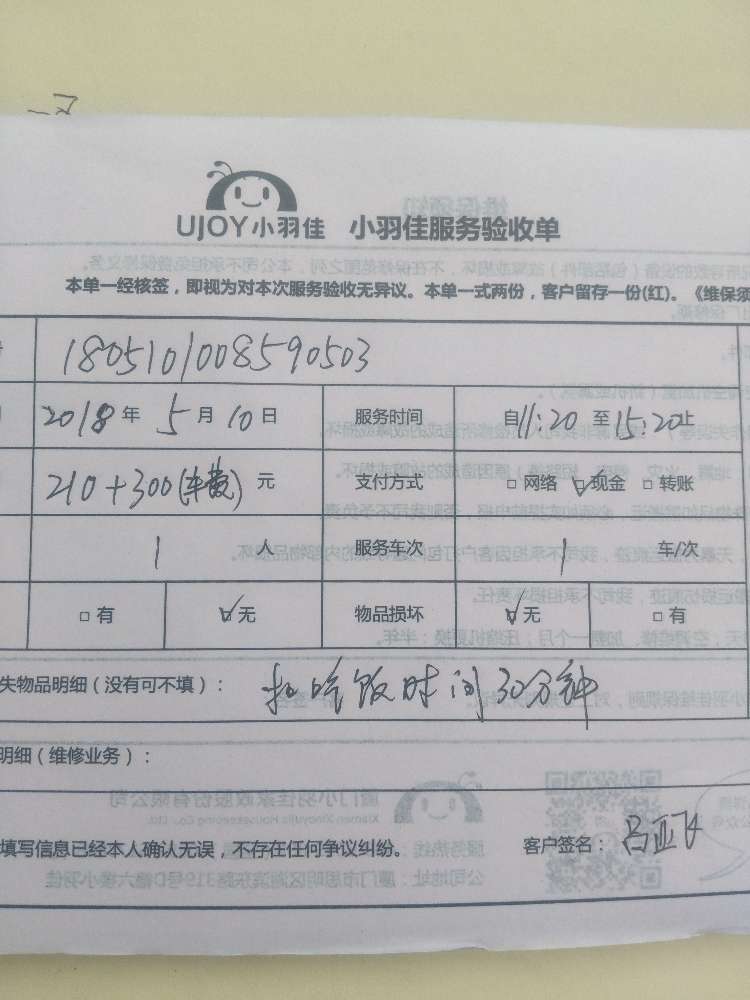 UJOY小羽佳 小羽佳服务验收单
本单一经核签，即视为对本次服务验收无异议。本单一式两份，客户留存一份(红)。《维保须
1805101008590503
2018年 5月10日 服务时间 自11:20至15:20止
210+300(车费)元 支付方式 □ 网络 ☑现金 □ 转账
1 人 服务车次 1 车/次
□ 有 ☑无 物品损坏 ☑无 □ 有
失物品明细（没有可不填）： 扣吃饭时间30分钟
明细（维修业务）：
填写信息已经本人确认无误，不存在任何争议纠纷。 客户签名：吕亚飞